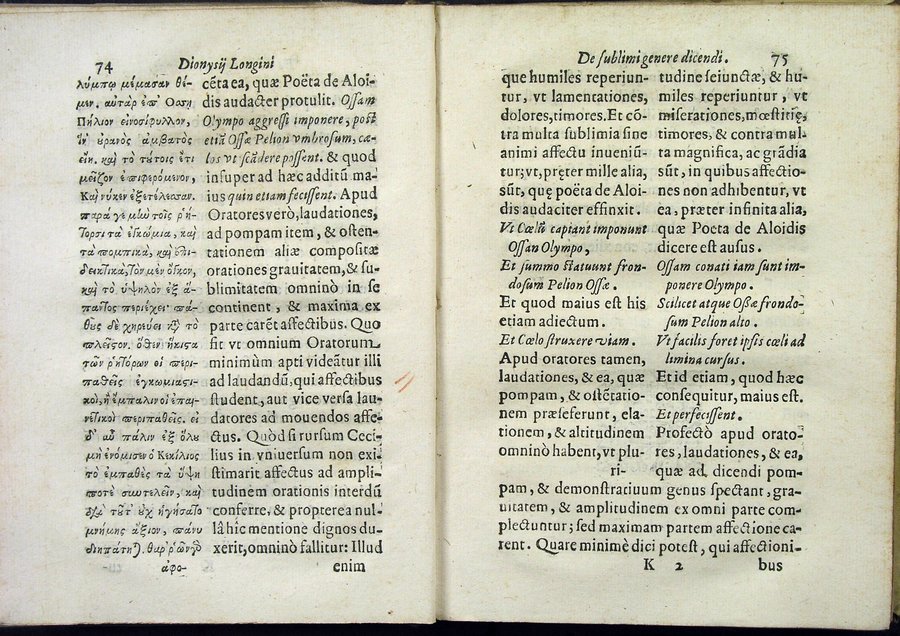 74 Dionysij Longini
λύμπῳ μέμασαν θέ-
μεν. αὐτὰρ ἐπ' Ὄσσῃ
Πήλιον εἰνοσίφυλλον,
ἵν' οὐρανὸς ἀμβατὸς
εἴη. καὶ τὸ τούτοις ἔτι
μεῖζον ἐπιφερόμενον,
Καί νύ κεν ἐξετέλεσσαν.
παρά γε μὼ τοῖς ῥή-
τορσι τὰ ἐγκώμια, καὶ
τὰ πομπικὰ, καὶ ἐπι-
δεικτικὰ, τὸν μὲν ὄγκον,
καὶ τὸ ὑψηλὸν ἐξ ἅ-
παντος περιέχει· πά-
θους δὲ χηρεύει κτ τὸ
πλεῖστον. ὅθεν ἥκιστα
τῶν ῥητόρων οἱ περι-
παθεῖς ἐγκωμιαστι-
κοὶ, ἢ ἔμπαλιν οἱ ἐπαι-
νετικοὶ περιπαθεῖς. εἰ
δ' αὖ πάλιν ἐξ ὅλου
μὴ ἐνόμισεν ὁ Κεκίλιος
τὸ ἐμπαθὲς τὰ ὕψη
ποτὲ συντελεῖν, καὶ
διὰ τοῦτ' οὐχ ἡγήσατο
μνήμης ἄξιον, πάνυ
διηπάτη). θαρρῶν γὸ
ἀφο-
cēta ea, quæ Poëta de Aloi-
dis audacter protulit. Ossam
Olympo aggressi imponere, post
etiā Ossæ Pelion vmbrosum, cæ-
los vt scādere possent. & quod
insuper ad hæc additū ma-
ius quin etiam fecissent. Apud
Oratores verò, laudationes,
ad pompam item, & osten-
tationem aliæ compositæ
orationes grauitatem, & su-
blimitatem omninò in se
continent, & maxima ex
parte carēt affectibus. Quo
fit vt omnium Oratorum
minimùm apti videātur illi
ad laudandū, qui affectibus
student, aut vice versa lau-
datores ad mouendos affe-
ctus. Quòd si rursum Ceci-
lius in vniuersum non exi-
stimarit affectus ad ampli-
tudinem orationis interdū
conferre, & propterea nul-
lâ hic mentione dignos du-
xerit, omninò fallitur: Illud
enim
De sublimi genere dicendi. 75
que humiles reperiun-
tur, vt lamentationes,
dolores, timores. Et cō-
tra multa sublimia sine
animi affectu inueniū-
tur; vt, præter mille alia,
sūt, quę poëta de Aloi-
dis audaciter effinxit.
Vt Cœlū capiant imponunt
Ossan Olympo,
Et summo statuunt fron-
dosum Pelion Ossæ.
Et quod maius est his
etiam adiectum.
Et Cœlo struxere viam.
Apud oratores tamen,
laudationes, & ea, quæ
pompam, & ostētatio-
nem præseferunt, ela-
tionem, & altitudinem
omninò habent, vt plu-
ri-
tudine seiunctæ, & hu-
miles reperiuntur, vt
miserationes, mœstitię,
timores, & contra mul-
ta magnifica, ac grādia
sūt, in quibus affectio-
nes non adhibentur, vt
ea, præter infinita alia,
quæ Poeta de Aloidis
dicere est ausus.
Ossam conati iam sunt im-
ponere Olympo.
Scilicet atque Oßæ frondo-
sum Pelion alto.
Vt facilis foret ipsis cœli ad
limina cursus.
Et id etiam, quod hæc
consequitur, maius est.
Et perfecissent.
Profectò apud orato-
res, laudationes, & ea,
quæ ad dicendi pom-
pam, & demonstratiuum genus spectant, gra-
uitatem, & amplitudinem ex omni parte com-
plectuntur; sed maximam partem affectione ca-
rent. Quare minimè dici potest, qui affectioni-
K 2 bus